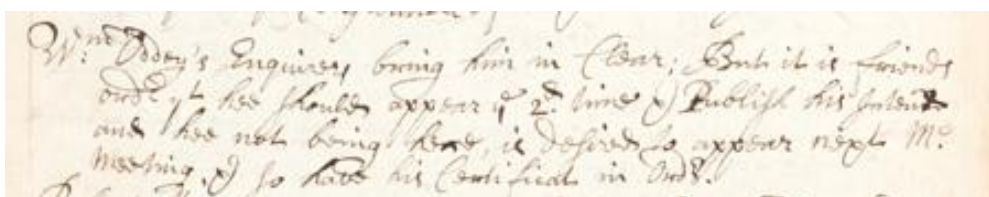 Wm. Oddey's Enquirers bring him in Clear; But it is friends
ordr. yt hee should appear ye 2d. time & Publish his Intent
and hee not being here, is desired to appear next Mo.
Meeting, & so have his Certificat in Ordr.